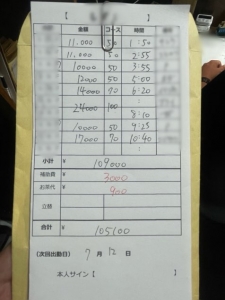 【 】
金額 コース 時間
11.000 50 1:50
11.000 50 2:55
10000 50 3:55
12000 60 5:00
14000 70 6:20
24000 100 8:10
10000 50 9:25
17000 70 10:40
小計 ¥ 109000
備品費 ¥ 3000
お茶代 ¥ 900
立替 ¥
合計 ¥ 105100
(次回出勤日) 7 月 12 日
本人サイン【 】